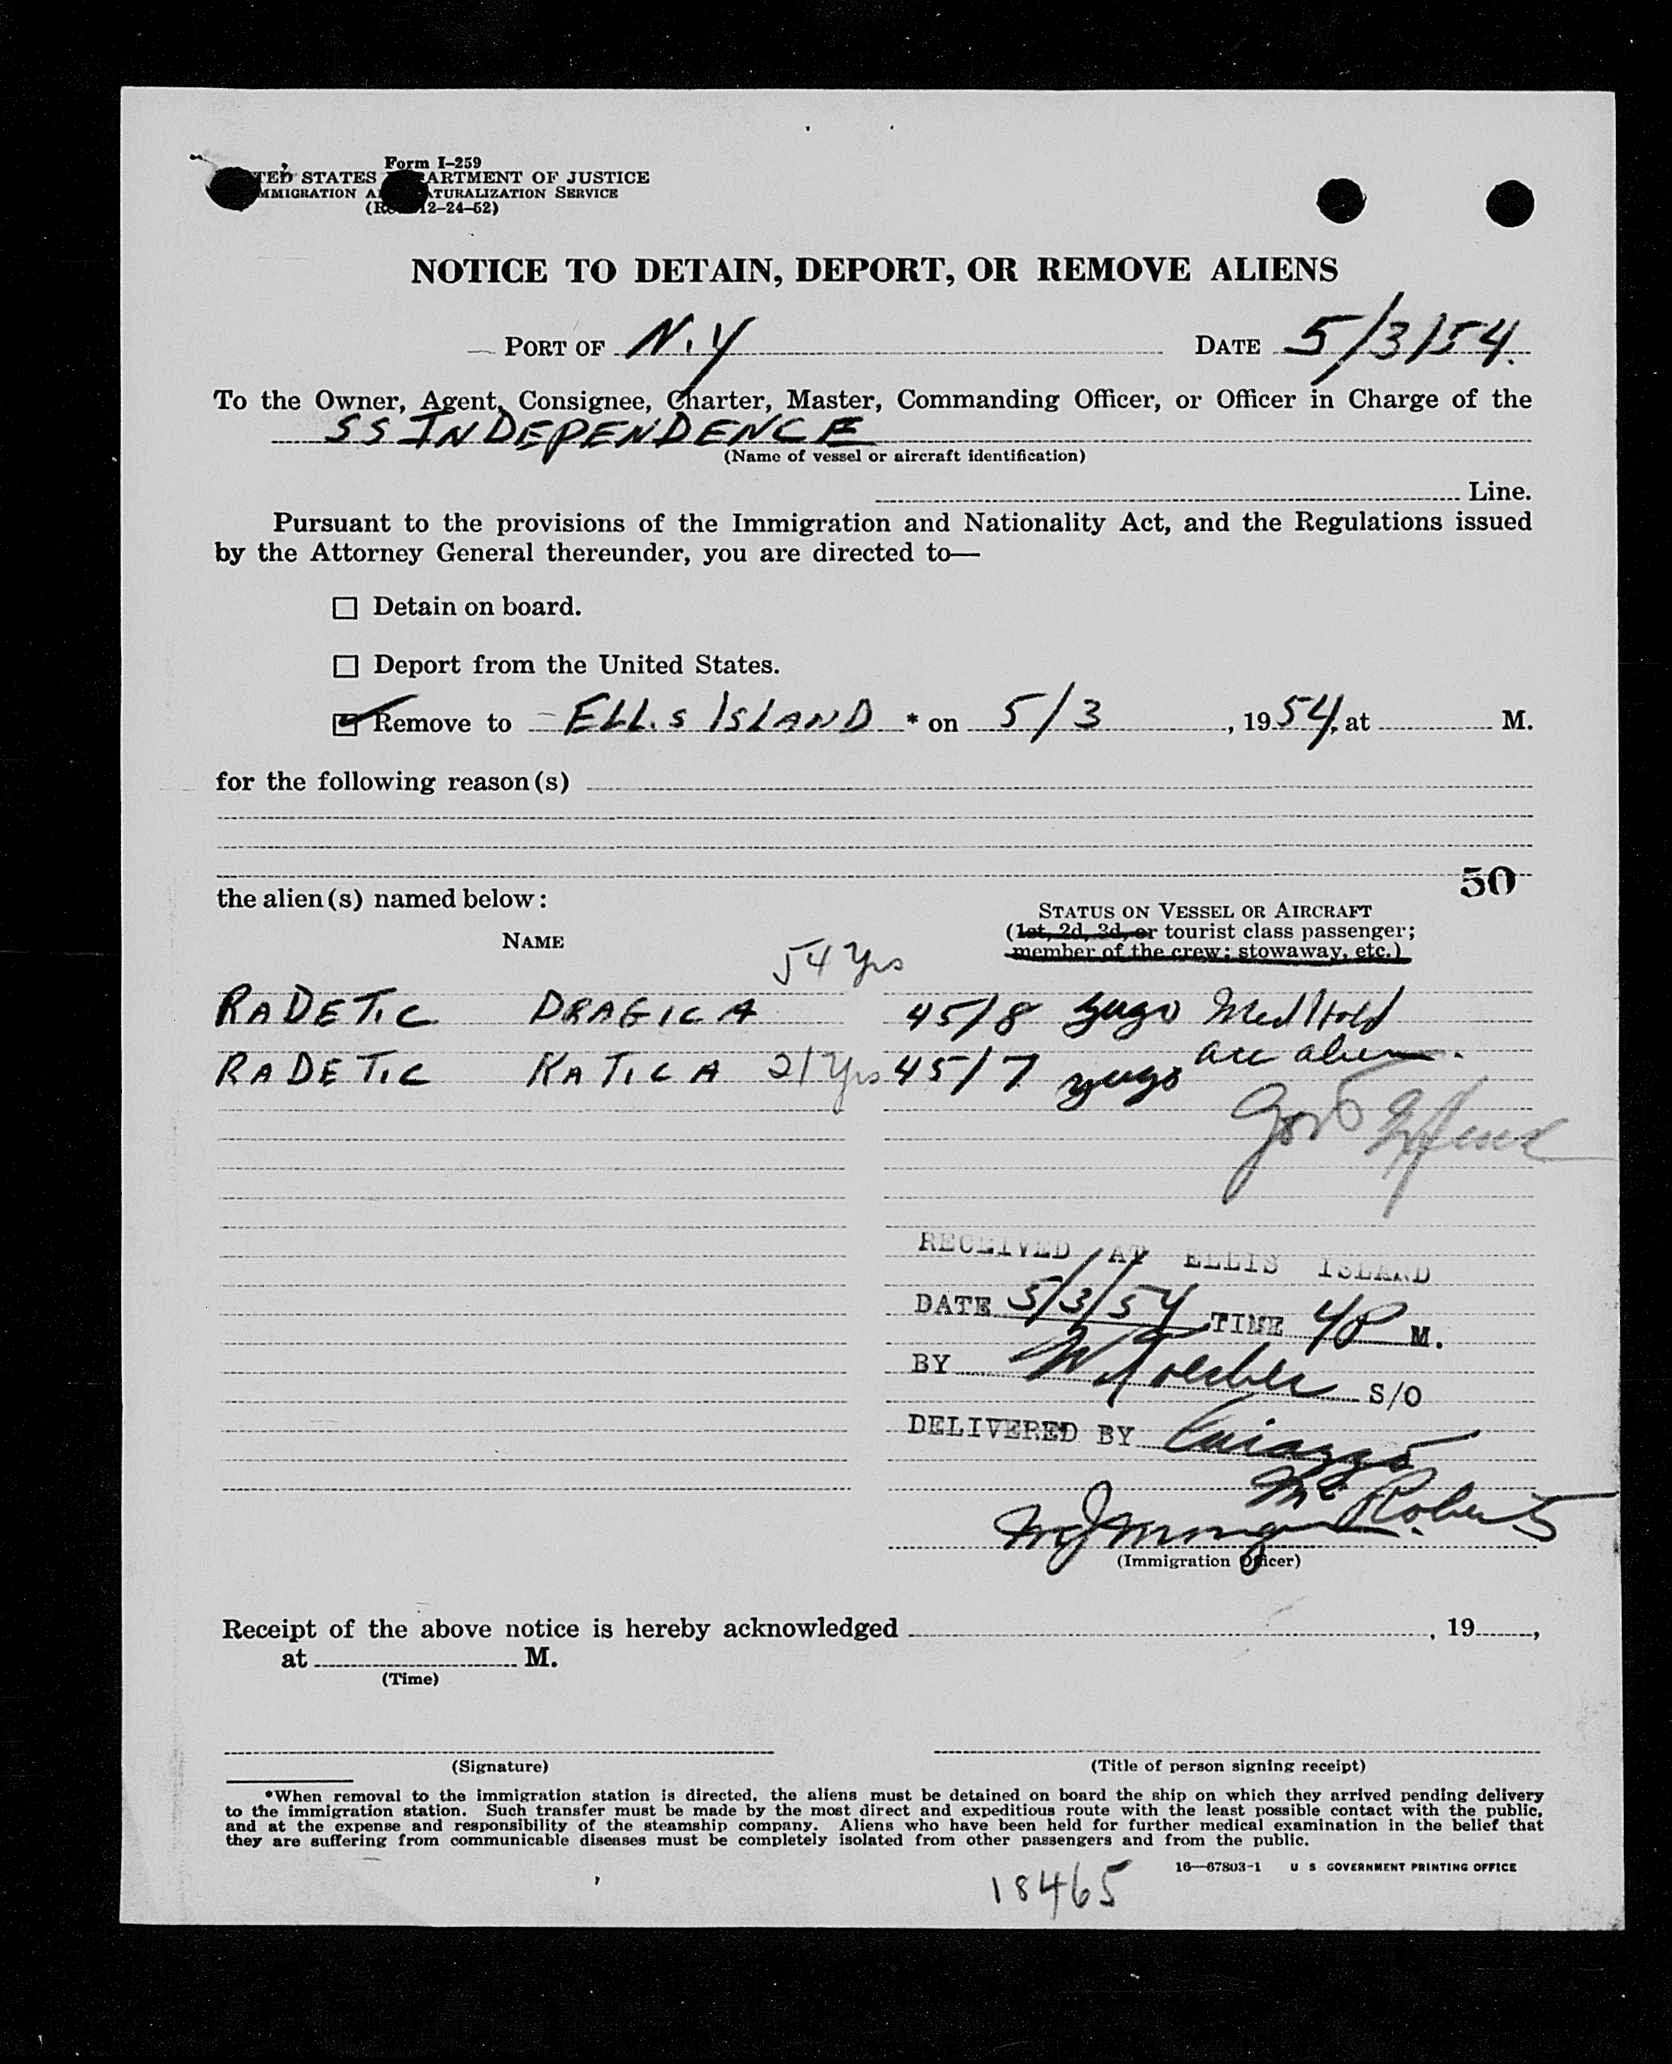 Form I-259
TED STATES DEPARTMENT OF JUSTICE
IMMIGRATION AND NATURALIZATION SERVICE
12-24-52)
NOTICE TO DETAIN, DEPORT, OR REMOVE ALIENS
PORT OF N.Y DATE 5/3/54.
To the Owner, Agent, Consignee, Charter, Master, Commanding Officer, or Officer in Charge of the
SS INDEPENDENCE
(Name of vessel or aircraft identification)
Line.
Pursuant to the provisions of the Immigration and Nationality Act, and the Regulations issued
by the Attorney General thereunder, you are directed to—
Detain on board.
Deport from the United States.
Remove to ELLIS ISLAND * on 5/3, 1954, at M.
for the following reason(s)
50
the alien(s) named below:
STATUS ON VESSEL OR AIRCRAFT
NAME (1st, 2d, 3d, or tourist class passenger;
member of the crew; stowaway, etc.)
54 Yrs
RADETIC DRAGICA 45/8 yugo Med Hold
acc alien.
RADETIC KATICA 21 Yrs 45/7 yugo
Gov't
RECEIVED AT ELLIS ISLAND
DATE 5/3/54 TIME 4P M.
BY S/O
DELIVERED BY
Mc Roberts
(Immigration Officer)
Receipt of the above notice is hereby acknowledged , 19 ,
at M.
(Time)
(Signature) (Title of person signing receipt)
*When removal to the immigration station is directed, the aliens must be detained on board the ship on which they arrived pending delivery
to the immigration station. Such transfer must be made by the most direct and expeditious route with the least possible contact with the public,
and at the expense and responsibility of the steamship company. Aliens who have been held for further medical examination in the belief that
they are suffering from communicable diseases must be completely isolated from other passengers and from the public.
16—67803-1 U S GOVERNMENT PRINTING OFFICE
18465